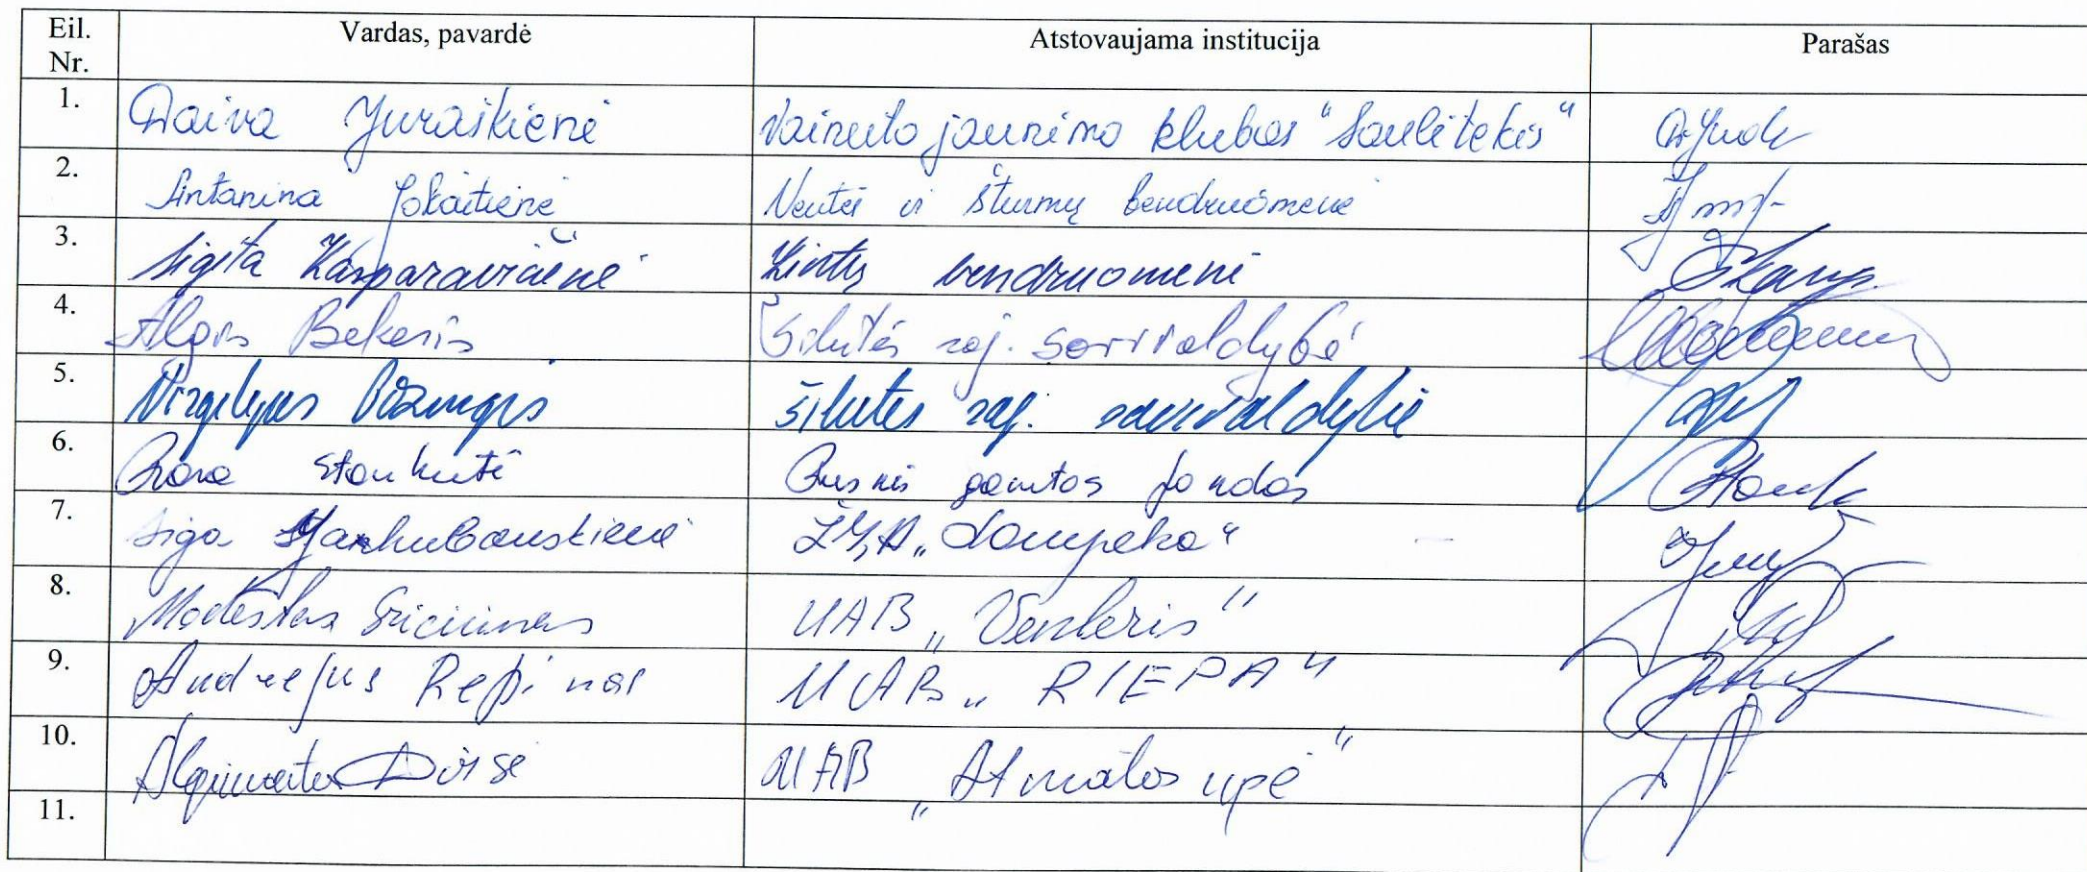 Eil. Nr. Vardas, pavardė Atstovaujama institucija Parašas
1. Daiva Juraškienė Vainuto jaunimo klubas "Saulėtekis"
2. Antanina Jokaitienė Ventės ir Šturmų bendruomenė
3. Sigita Kasparavičienė Kintų bendruomenė
4. Algis Bekeris Šilutės raj. savivaldybė
5. Virgilijus Pozingis Šilutės raj. savivaldybė
6. Rasa Stankutė Rusnės gamtos fondas
7. Siga Jankubauskienė ŽŪA „Lampeka“
8. Modestas Griciūnas UAB „Venteris“
9. Andrejus Repinas UAB „RIEPA“
10. Algimantas Dirsė UAB „Atmatos upė“
11.